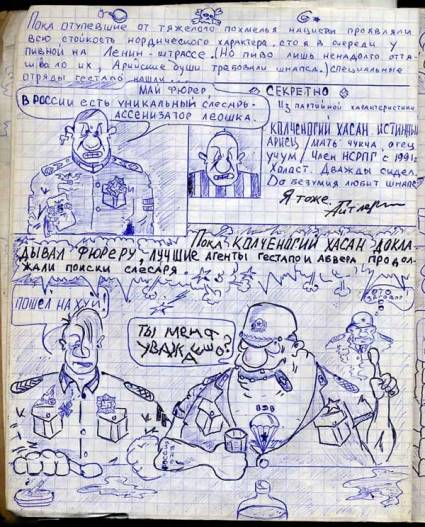 6
Пока отупевшие от тяжелого похмелья нацисты проявляли
всю стойкость нордического характера, стоя в очереди у
пивной на Ленин-штрассе. (Но пиво лишь ненадолго отта-
ивало их, Арийские души требовали шнапса.) Специальные
отряды гестапо нашли...
Май фюрер,
в России есть уникальный слесарь-
ассенизатор Леошка.
Секретно
Из партийной характеристики
Колченогий Хасан истинный
ариец / мать чукча, отец
Член НСРПГ с 1991г.
Холост. Дважды сидел.
До безумия любит шнапс.
Я тоже.
Гитлер
Пока Колченогий Хасан докла-
дывал фюреру, лучшие агенты гестапо и абвера продол-
жали поиски слесаря.
Пошел на хуй!
Ты меня
уважаишо?